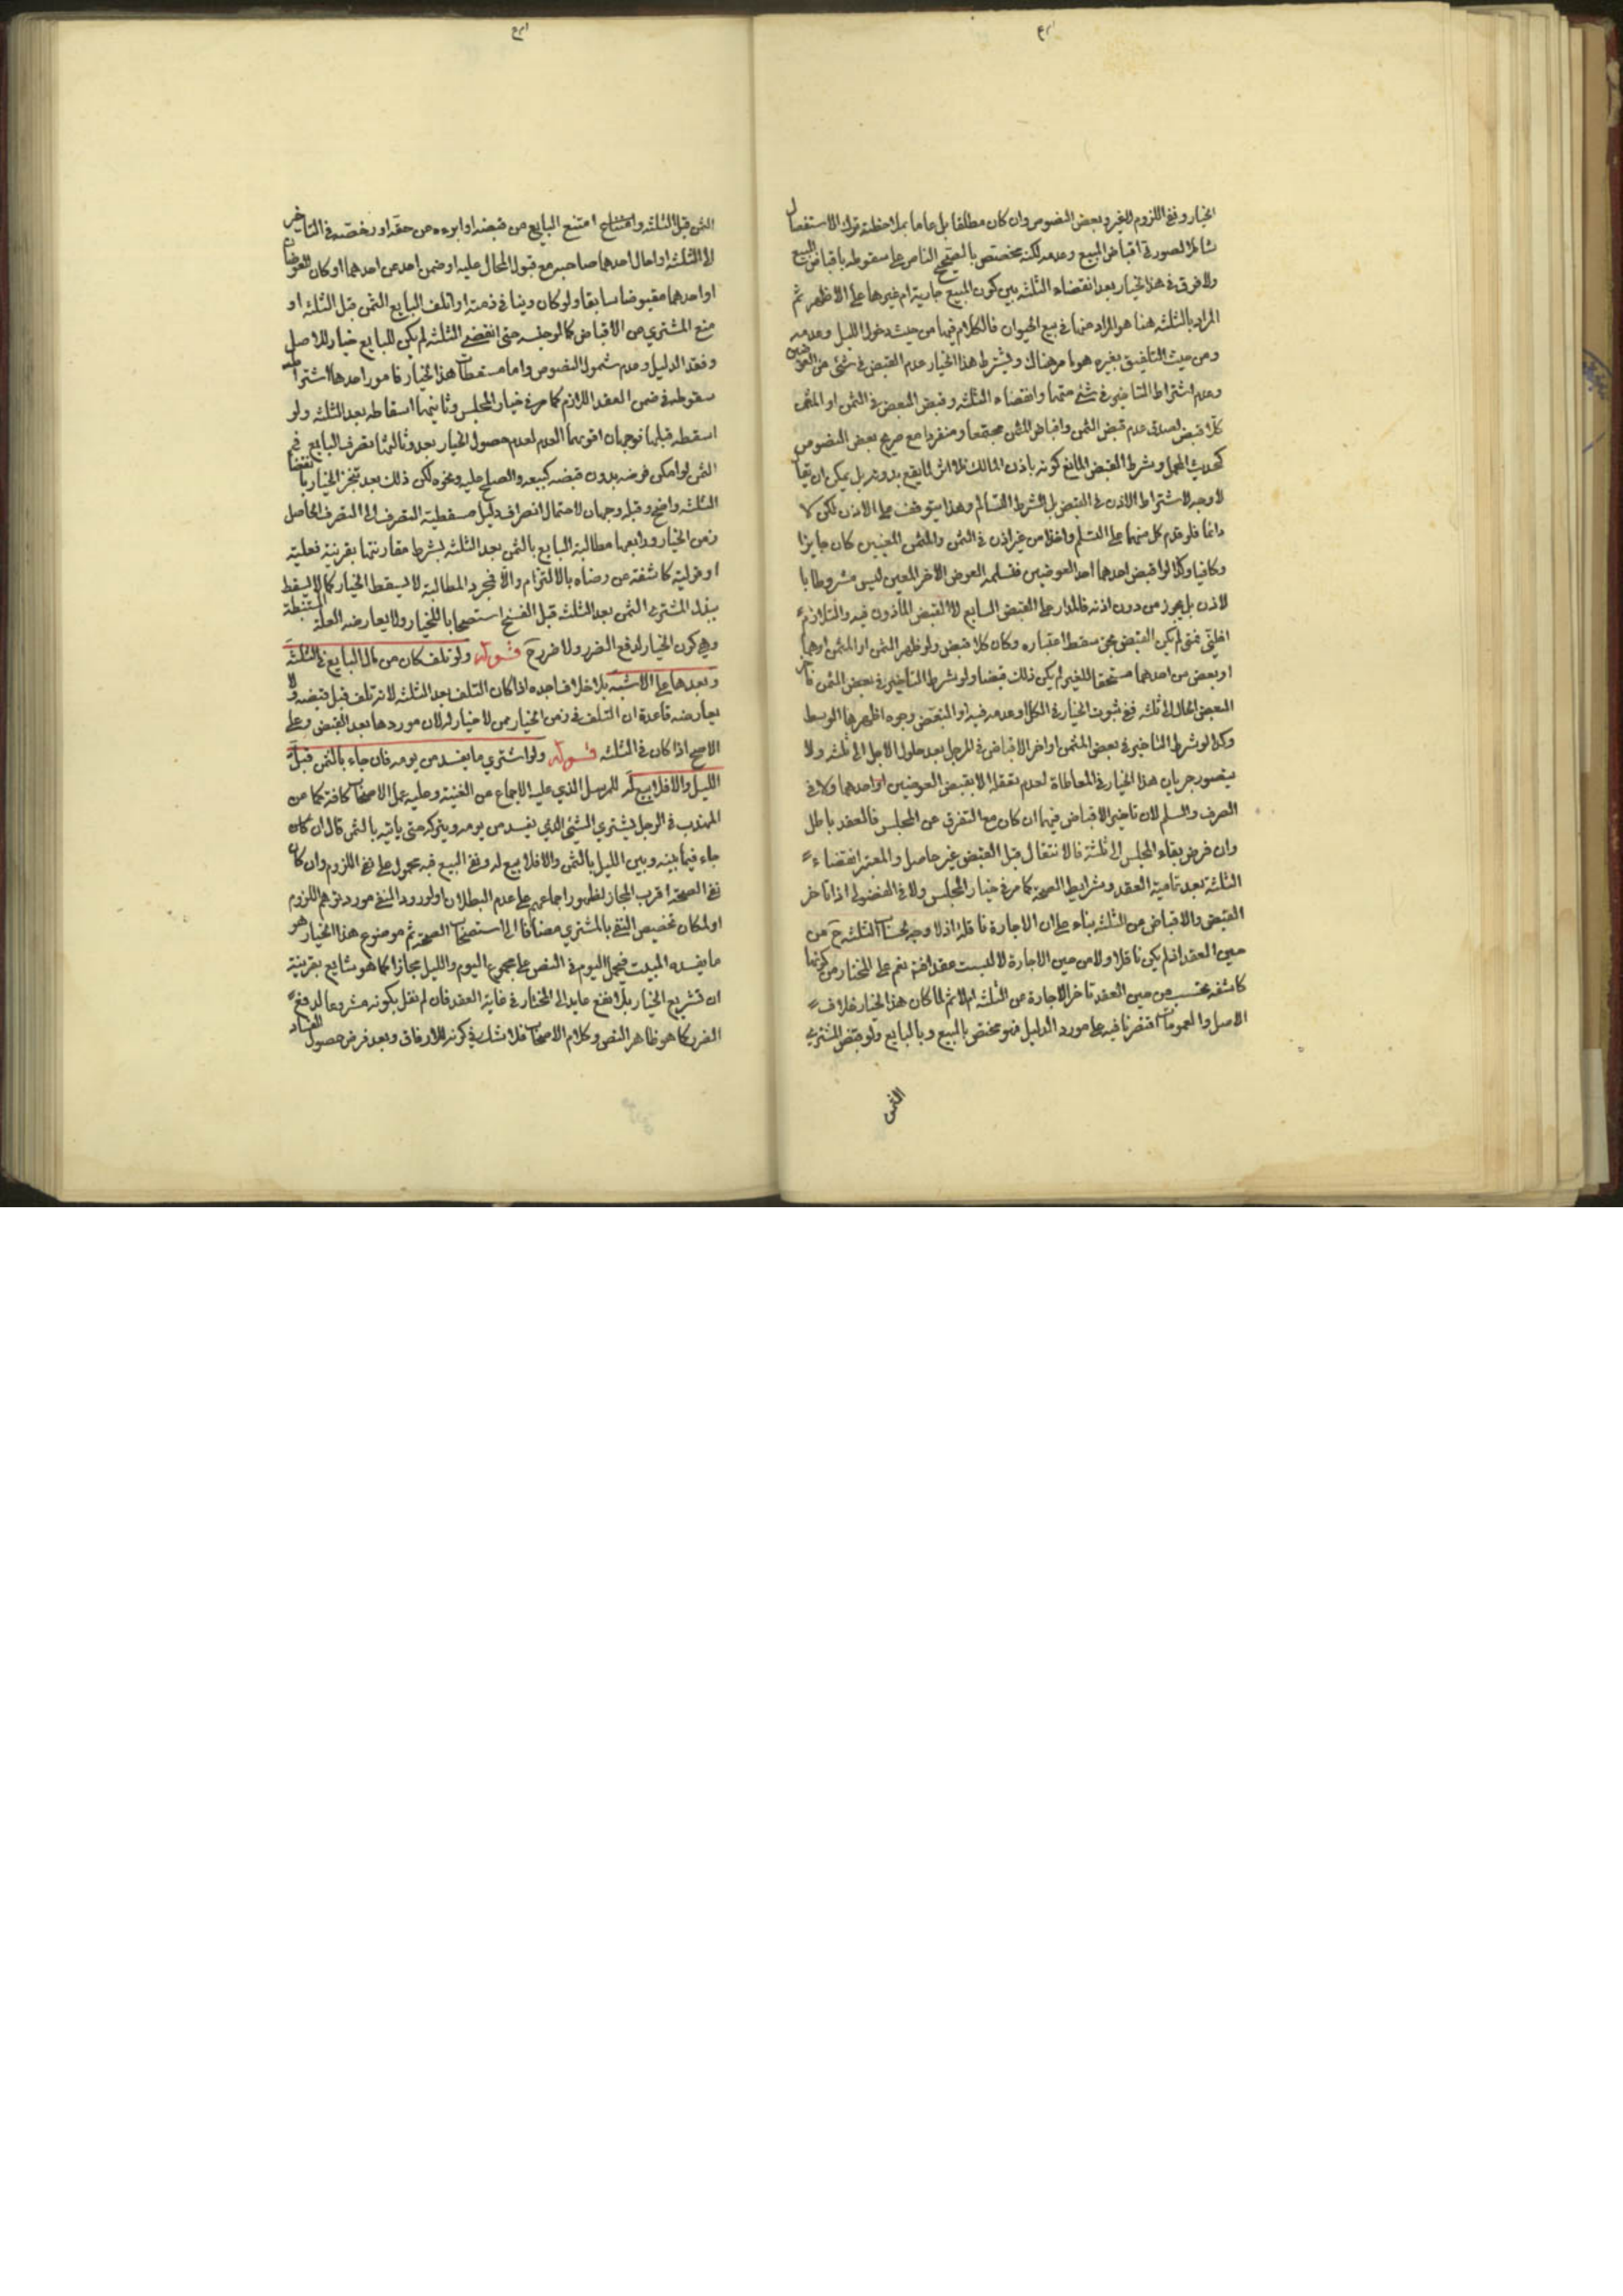 الخيار ونفي اللزوم للغير وبعض النصوص وان كان مطلقا بل عاما بملاحظة ترك الاستفصال
شاملا لصورتي اقباض المبيع وعدمه لكنه مختص بالصحيح الناص على سقوطه باقباض المبيع
ولا فرق في هذا الخيار بعد انقضاء الثلثة بين كون المبيع جارية ام غيرها على الاظهر ثم
المراد بالثلثة هنا هو المراد منها في بيع الحيوان فالكلام فيها من حيث دخول الليل وعدمه
ومن حيث التلفيق بغيره هو ما مر هناك ويشترط هذا الخيار عدم القبض في شئ من العوضين
وعدم اشتراط التاخير في شئ منهما وانقضاء الثلثة وقبض البعض في الثمن او المثمن
كلا قبض لصدق عدم قبض الثمن واقباض المثمن مجتمعا ومنفردا مع صريح بعض النصوص
كحديث المحمل وبشرط القبض المانع كونه باذن المالك فلا اثر لما يقع بدونه بل يمكن ان يقال
لا وجه لاشتراط الاذن في القبض بل الشرط التسالم وهذا يتوقف على الاذن لكن لا
دائما فلو قدم كل منهما على التسلم واخذا من غير اذن في الثمن والمثمن المعينين كان جايزا
وكافيا وكذا لو اقبض احدهما احد العوضين فتسلمه العوض الاخر المعين ليس مشروطا با
لاذن بل يجوز من دون اذنه فالمدار على القبض السايغ لا القبض الماذون فيه والتلازم
اغلبي فمتى لم يكن القبض مجز سقط اعتباره وكان كلا قبض ولو ظهر الثمن او المثمن او هما
او بعض من احدهما مستحقا للغير لم يكن ذلك قبضا ولو شرط التاخير في بعض الثمن فاخر
البعض الحال الى ثلثه ففي ثبوت الخيار في الكل او عدمه فيه او التبعض وجوه اظهرها الوسط
وكذا لو شرط التاخير في بعض المثمن او اخر الاقباض في المؤجل بعد حلول الاجل الى ثلثه ولا
يتصور جريان هذا الخيار في المعاطاة لعدم تعقلها الا بقبض العوضين او احدهما ولا في
الصرف والسلم لان تاخير الاقباض فيهما ان كان مع التفرق عن المجلس فالعقد باطل
وان فرض بقاء المجلس الى ثلثة فالانتقال قبل القبض غير حاصل والمعتبر انقضاء
الثلثة بعد تمامية العقد وشرايط الصحة كما مر في خيار المجلس ولا في الفضولي اذا تاخر
القبض والاقباض عن الثلثة بناء على ان الاجازة ناقلة اذ لا وجه لحساب الثلثة ح من
حين العقد اذ لم يكن ناقلا ولا من حين الاجازة لا ليست عقدا فتم نعم على المختار من كونها
كاشفه يحتسب من حين العقد تاخر الاجازة عن الثلثه ام لا ثم لما كان هذا الخيار خلاف
الاصل والعمومات اقتصرنا فيه على مورد الدليل فهو مختص بالمبيع وبالبايع ولو قبض المشتري
الثمن
الثمن قبل الثلثه وامتنع البايع من قبضه او ابرءه من حقه او رخصه في التاخير
الى الثلثة او احال احدهما صاحبه مع قبول المحال عليه او ضمن احد عن احدهما او كان العوضان
او احدهما مقبوضا سابقا ولو كان دينا في ذمته او اتلف البايع الثمن قبل الثلثة او
منع المشتري من الاقباض كما لو حبسه حتى انقضى الثلثه لم يكن للبايع خيار للاصل
وفقد الدليل وعدم شمول النصوص واما مسقطات هذا الخيار فامور احدها اشتراط
سقوطه في ضمن العقد اللازم كما مر في خيار المجلس وثانيها اسقاطه بعد الثلثه ولو
اسقطه قبلها فوجهان اقويهما العدم لعدم حصول الخيار بعد وثالثها تصرف البايع في
الثمن لو امكن فرضه بدون قبضه كبيعه والصلح عليه ونحوه لكن ذلك بعد تنجز الخيار بانقضاء
الثلثه واضح وقبله وجهان لاحتمال انصراف دليل مسقطية التصرف الى التصرف الحاصل
زمن الخيار ورابعها مطالبة البايع بالثمن بعد الثلثة بشرط مقارنتها بقرينة فعلية
او قولية كاشفة عن رضاه بالالتزام والا فمجرد المطالبة لا يسقط الخيار كما لا يسقط
ببذل المشتري الثمن بعد الثلثة قبل الفسخ استصحابا للخيار ولا يعارضه العلة المستنبطة
وهي كون الخيار لدفع الضرر ولا ضرر ح قوله ولو تلف كان من مال البايع في الثلثة
وبعدها على الاشبه بلا خلاف اجده اذا كان التلف بعد الثلثه لانه تلف قبل قبضه ولا
يعارضه قاعدة ان التلف في زمن الخيار ممن لا خيار له لان موردها بعد القبض وعلى
الاصح اذا كان في الثلثه قوله ولو اشترى ما يفسد من يومه فان جاء بالثمن قبل
الليل والا فلا بيع له للمرسل الذي عليه الاجماع عن الغنية وعليه عمل الاصحاب كافة كما عن
المهذب في الرجل يشتري الشئ الذي يفسد من يومه ويتركه حتى ياتيه بالثمن قال ان كان
جاء فيما بينه وبين الليل بالثمن والا فلا بيع له ونفي البيع فيه محمول على نفي اللزوم وان كان
نفي الصحة اقرب المجاز لظهور اجماعهم على عدم البطلان ولورود النفي مورد توهم اللزوم
او لمكان تخصيص النفي بالمشتري مضافا الى استصحاب الصحة ثم موضوع هذا الخيار هو
ما يفسده المبيت فيحمل اليوم في النص على مجموع اليوم والليل مجازا كما هو شايع بقرينة
ان تشريع الخيار بلا نفع عايد الى المختار في غاية البعد فان لم نقل بكونه مشروعا لدفع
الضرر كما هو ظاهر النص وكلام الاصحاب فلا شك في كونه للارفاق وبعد فرض حصول الفساد